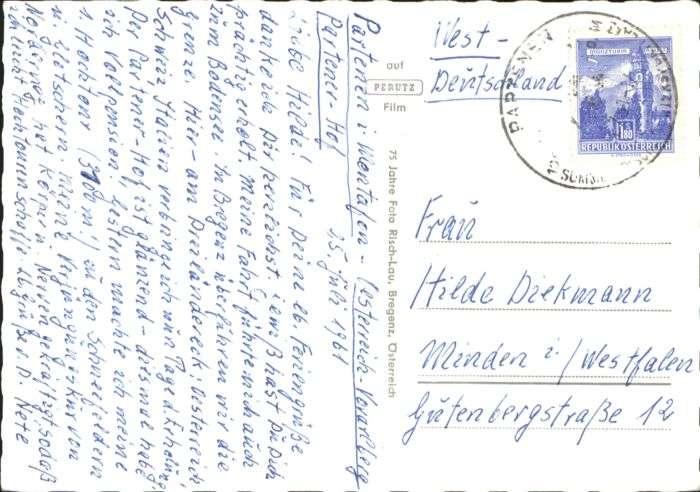 Partenen i. Montafon - (Österreich Vorarlberg
Partener-Hof 15. Juli 1961
Liebe Hilde! Für Deine lb Feriengrüße
danke ich Dir herzlichst. Gewiß hast Du Dich
prächtig erholt. Meine Fahrt führte mich auch
zum Bodensee. In Bregenz überfuhren wir die
Grenze. Hier am Dreiländereck Österreich
Schweiz Italien verbringe ich nun Tage d. Erholung.
Der Partener-Hof ist glänzend - diesmal habe
ich Vollpension. Gestern machte ich meine
1. Hochtour (3100 m.) zu den Schneefeldern
u. Gletschern. meine Verjüngungskur von
Norderney hat Körper u. Nerven gekräftigt sodaß
ich leicht Hochtouren schaffe. Hzl. Grüße v. D. Nete
auf
PERUTZ
Film
75 Jahre Foto Risch-Lau, Bregenz, Österreich
West-
Deutschland
PARTENEN
S 1.80
REPUBLIK ÖSTERREICH
Frau
Hilde Diekmann
Minden i./Westfalen
Gutenbergstraße 12